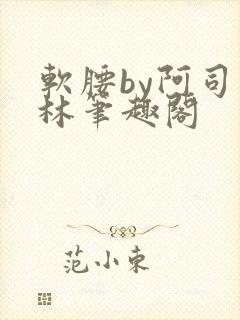 軟腰by阿司
林筆趣閣
范小東